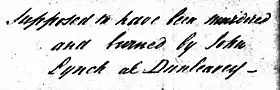 Supposed to have been murdered
and burned by John
Lynch at Dunleavey -